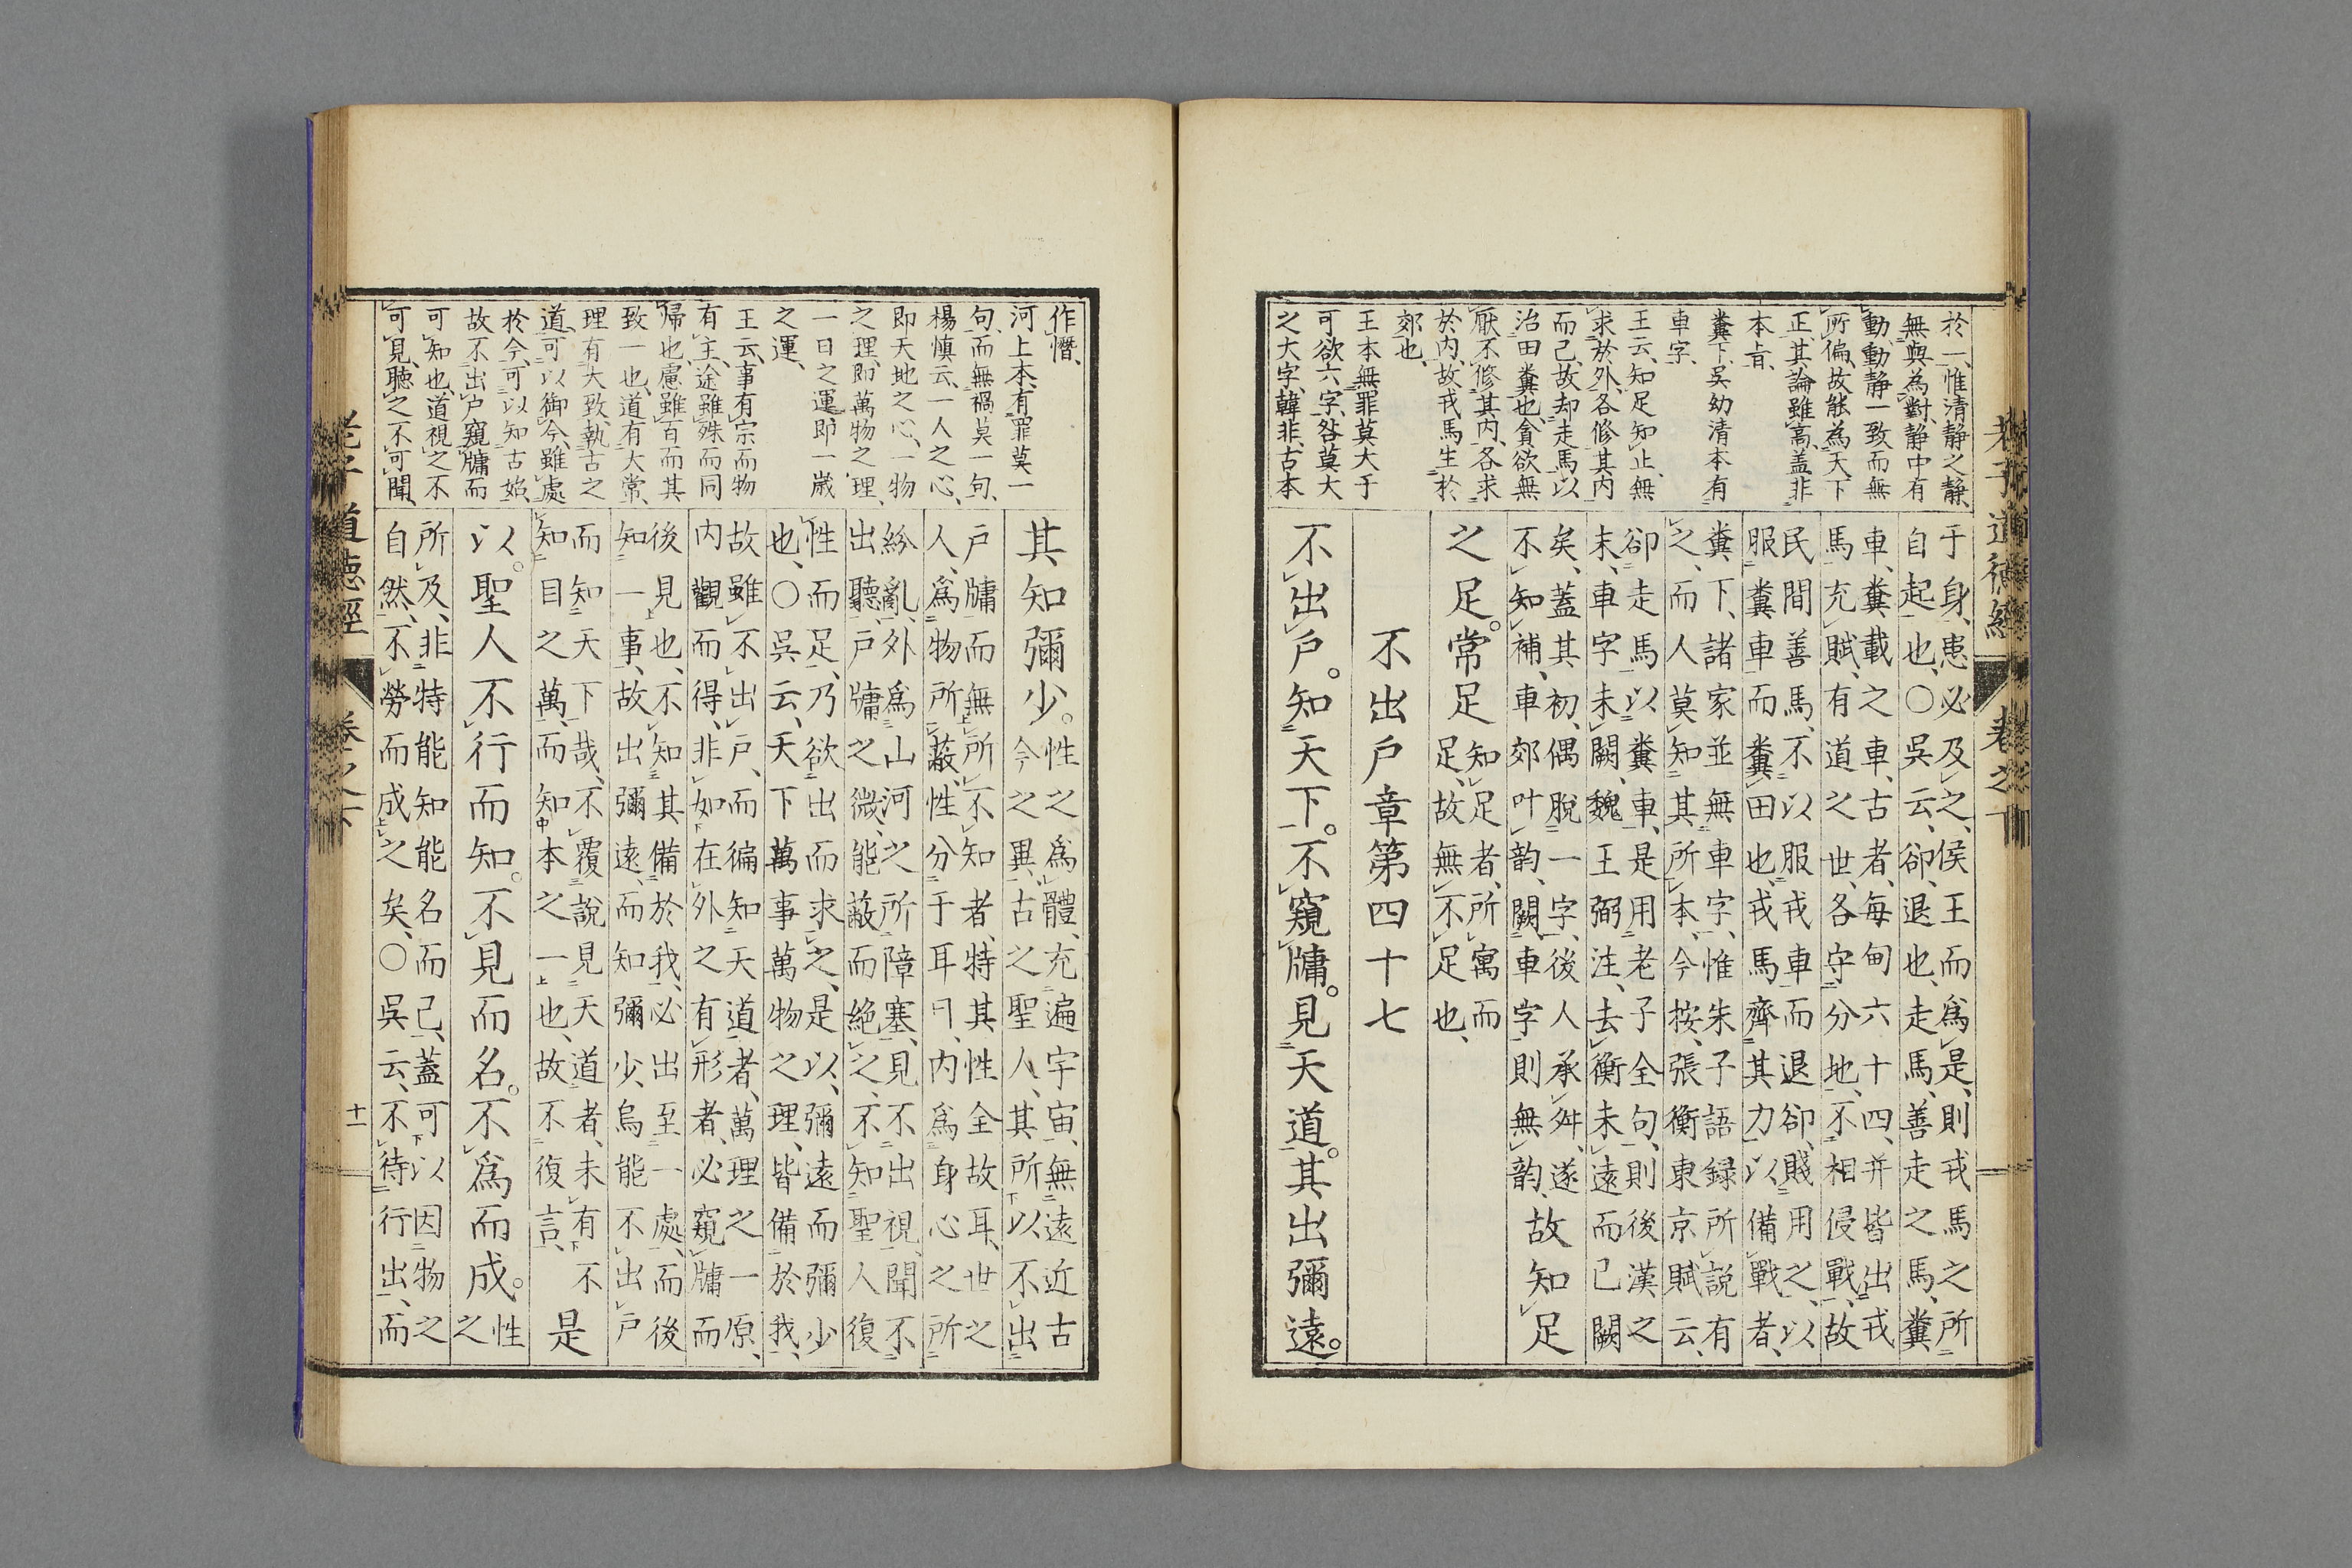 老子道德經 卷之下
於一、惟清静之静、
無與為對、静中有
動、動静一致而無
所偏、故能為天下
正、其論雖高、盖非
本旨、
糞下、吳幼清本有
車字、
王云、知足知止、無
求於外、各修其内
而己、故却走馬以
治田糞也、貪欲無
厭、不修其内、各求
於内、故戎馬生於
郊也、
王本無罪莫大于
可欲六字、咎莫大
之大字、韓非、古本
于身、患必及之、侯王而爲是、則戎馬之所
自起也、〇吳云、卻、退也、走馬、善走之馬、糞
車、糞載之車、古者、每甸六十四井皆出戎
馬充賦、有道之世、各守分地、不相侵戰、故
民間善馬、不以服戎車而退卻、賤用之、以
服糞車而糞田也、戎馬齊其力以備戰者、
糞下、諸家並無車字、惟朱子語録所説有
之、而人莫知其所本、今按、張衡東京賦云、
卻走馬以糞車、是用老子全句、則後漢之
末、車字未闕、魏王弼注、去衡未遠而已闕
矣、蓋其初、偶脫一字、後人承舛、遂
不知補、車郊叶韵、闕車字則無韵、
故知足
之足。常足
知足者、所寓而
足、故無不足也、
不出戶章第四十七
不出戶。知天下。不窺牖。見天道。其出彌遠。
作㬱、
河上本、有罪莫一
句、而無禍莫一句、
楊慎云、一人之心、
即天地之心、一物
之理、即萬物之理、
一日之運、即一歲
之運、
王云、事有宗而物
有主、途雖殊而同
歸也、慮雖百而其
致一也、道有大常、
理有大致、執古之
道、可以御今、雖處
於今、可以知古始、
故不出户窺牖而
可知也、道視之不
可見、聽之不可聞、
其知彌少。
性之爲體、充遍宇宙、無遠近古
今之異、古之聖人、其所以不出
戶牖而無所不知者、特其性全故耳、世之
人、爲物所蔽、性分于耳目、内爲身心之所
紛亂、外爲山河之所障塞、見不出視、聞不
出聽、戶牖之微、能蔽而絶之、不知聖人復
性而足、乃欲出而求之、是以、彌遠而彌少
也、〇吳云、天下萬事萬物之理、皆備於我、
故雖不出戶、而徧知天道者、萬理之一原、
内觀而得、非如在外之有形者、必窺牖而
後見也、不知其備於我、必出至一處、而後
知一事、故出彌遠、而知彌少、烏能不出戶
而知天下哉、不覆說見天道者、未有不
知目之萬、而知本之一也、故不復言、
是
以。聖人不行而知。不見而名。不爲而成。
性
之
所及、非特能知能名而己、蓋可以因物之
自然、不勞而成之矣、〇吳云、不待行出、而
老子道德經 卷之下
十一